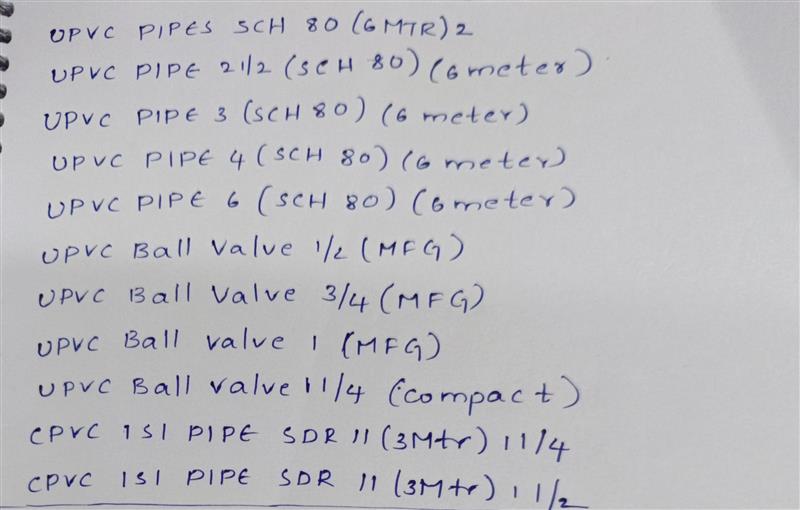 UPVC PIPES SCH 80 (6 MTR) 2
UPVC PIPE 2 1/2 (SCH 80) (6 meter)
UPVC PIPE 3 (SCH 80) (6 meter)
UPVC PIPE 4 (SCH 80) (6 meter)
UPVC PIPE 6 (SCH 80) (6 meter)
UPVC Ball Valve 1/2 (MFG)
UPVC Ball Valve 3/4 (MFG)
UPVC Ball valve 1 (MFG)
UPVC Ball valve 1 1/4 (compact)
CPVC ISI PIPE SDR 11 (3Mtr) 1 1/4
CPVC ISI PIPE SDR 11 (3Mtr) 1 1/2